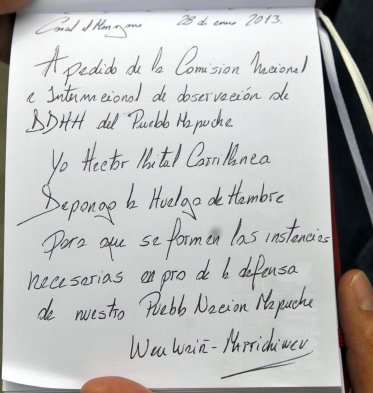 28 de enero 2013.
A pedido de la Comision Nacional
e Internacional de observación de
DDHH del Pueblo Mapuche
Yo Hector Llaitul Carrillanca
Depongo la Huelga de Hambre
Para que se formen las instancias
necesarias en pro de la defensa
de nuestro Pueblo Nacion Mapuche
Weuwaiñ - Marrichiweu